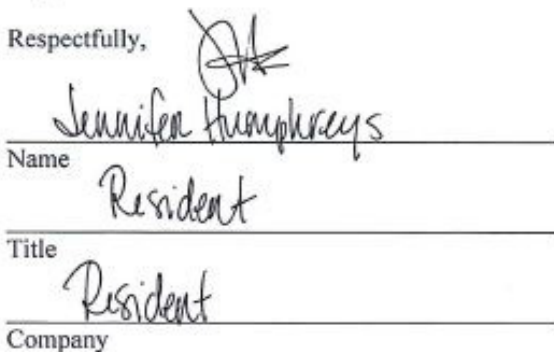 Respectfully,
Jennifer Humphreys
Name
Resident
Title
Resident
Company